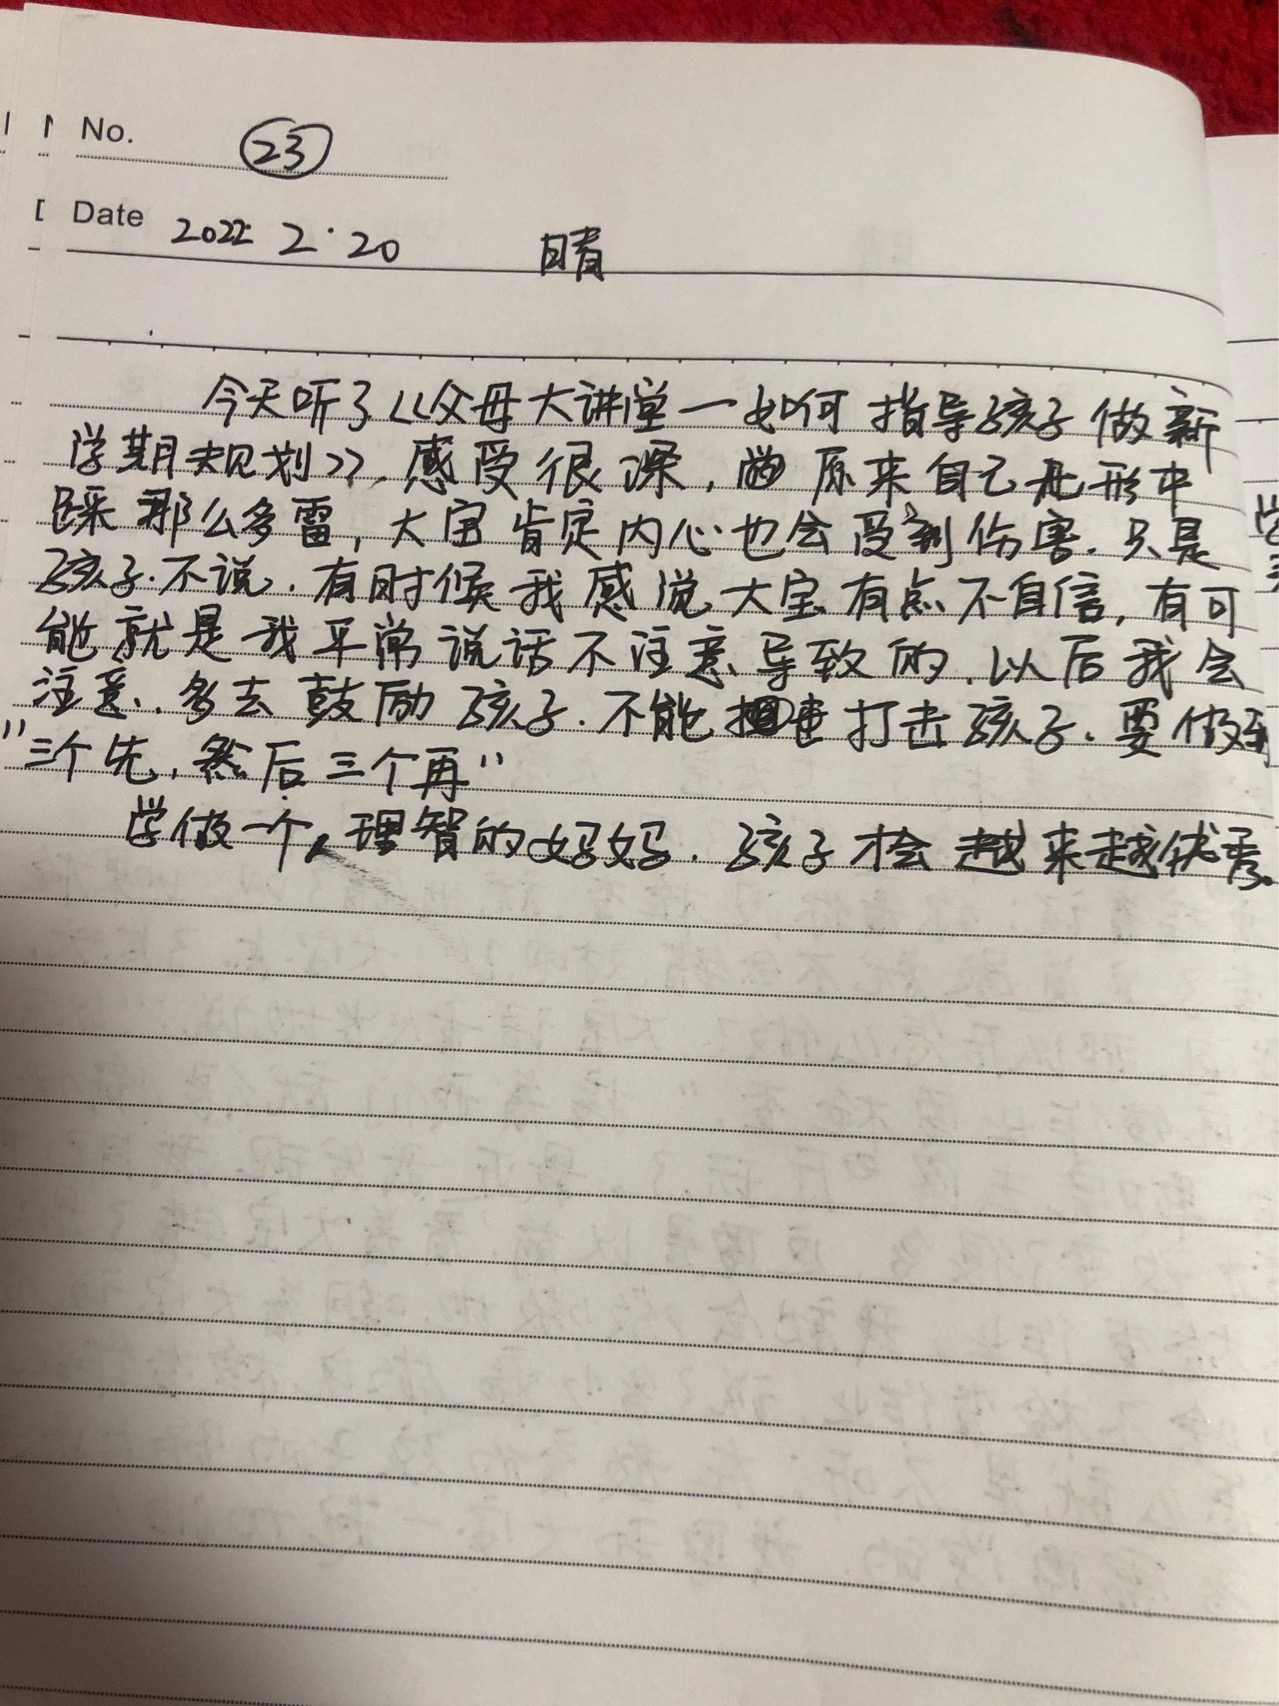 No. 23
Date 2022 2·20 晴
今天听了《父母大讲堂一如何指导孩子做新
学期规划》,感受很深,原来自己无形中
踩那么多雷,大宝肯定内心也会受到伤害.只是
孩子.不说.有时候我感觉大宝有点不自信,有可
能就是我平常说话不注意导致的.以后我会
注意.多去鼓励孩子.不能打击孩子.要做到
"三个先,然后三个再"
学做一个理智的妈妈.孩子才会越来越优秀.